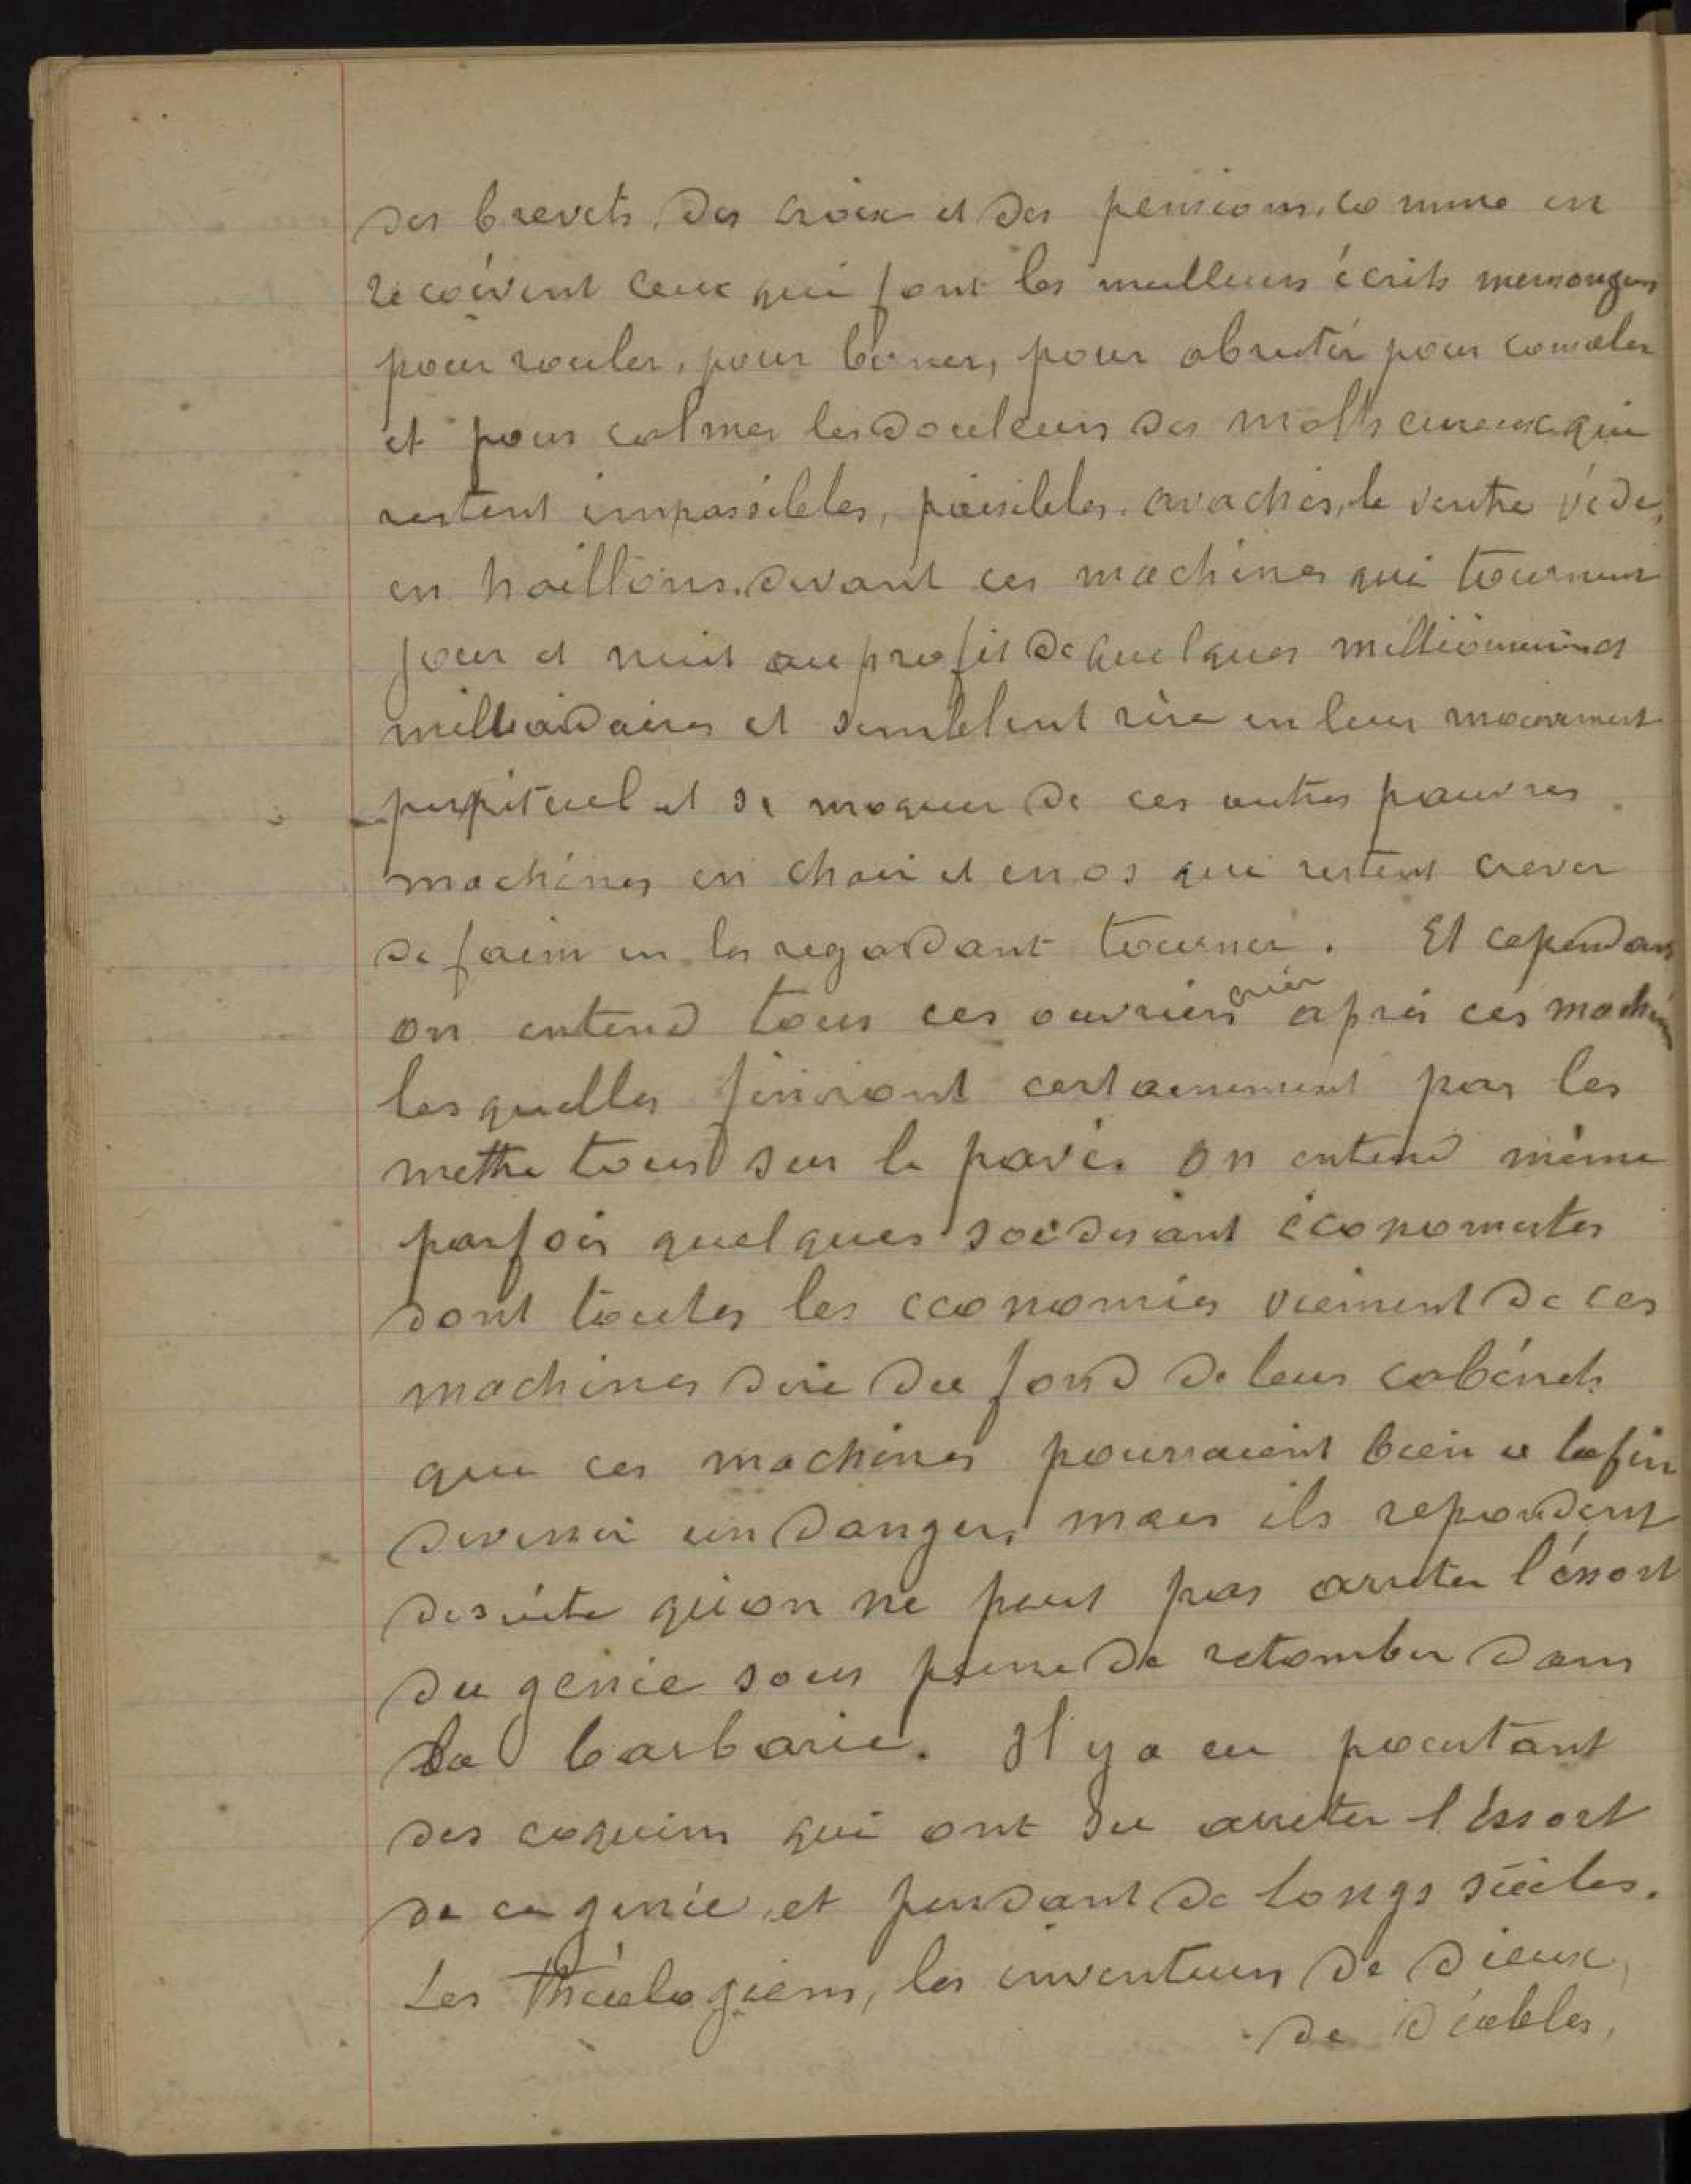 des brevets, des croix et des pensions, comme en
recoivent ceux qui font les meilleurs écrits mensongers
pour rouler, pour berner, pour abrutir pour consoler
et pour calmer les douleurs des malheureux qui
restent impassibles, paisibles, avachis, le ventre vide,
en haillons, devant ces machines qui tournent
jour et nuit au profit de quelques millionnaires
milliardaires et semblent rire en leur mouvement
perpituel et se moquer de ces autres pauvres
machines en chair et en os qui restent crever
de faim en les regardant tourner. Et cependant
on entend tous ces ouvriers crier après ces machines
lesquelles finiront certainement par les
mettre tous sur le pavé. On entend même
parfois quelques soidisant économistes
dont toutes les economies viennent de ces
machines dire du fond de leur cabinets
que ces machines pourraient bien a la fin
devenir un danger, mais ils repondent
desuite qu'on ne peut pas arreter l'éssort
du genie sous peine de retomber dans
la barbarie. Il y a eu pourtant
des coquins qui ont su arreter l'éssort
de ce genie, et pendant de longs siècles.
Les théologiens, les inventeurs de dieux,
de diables,